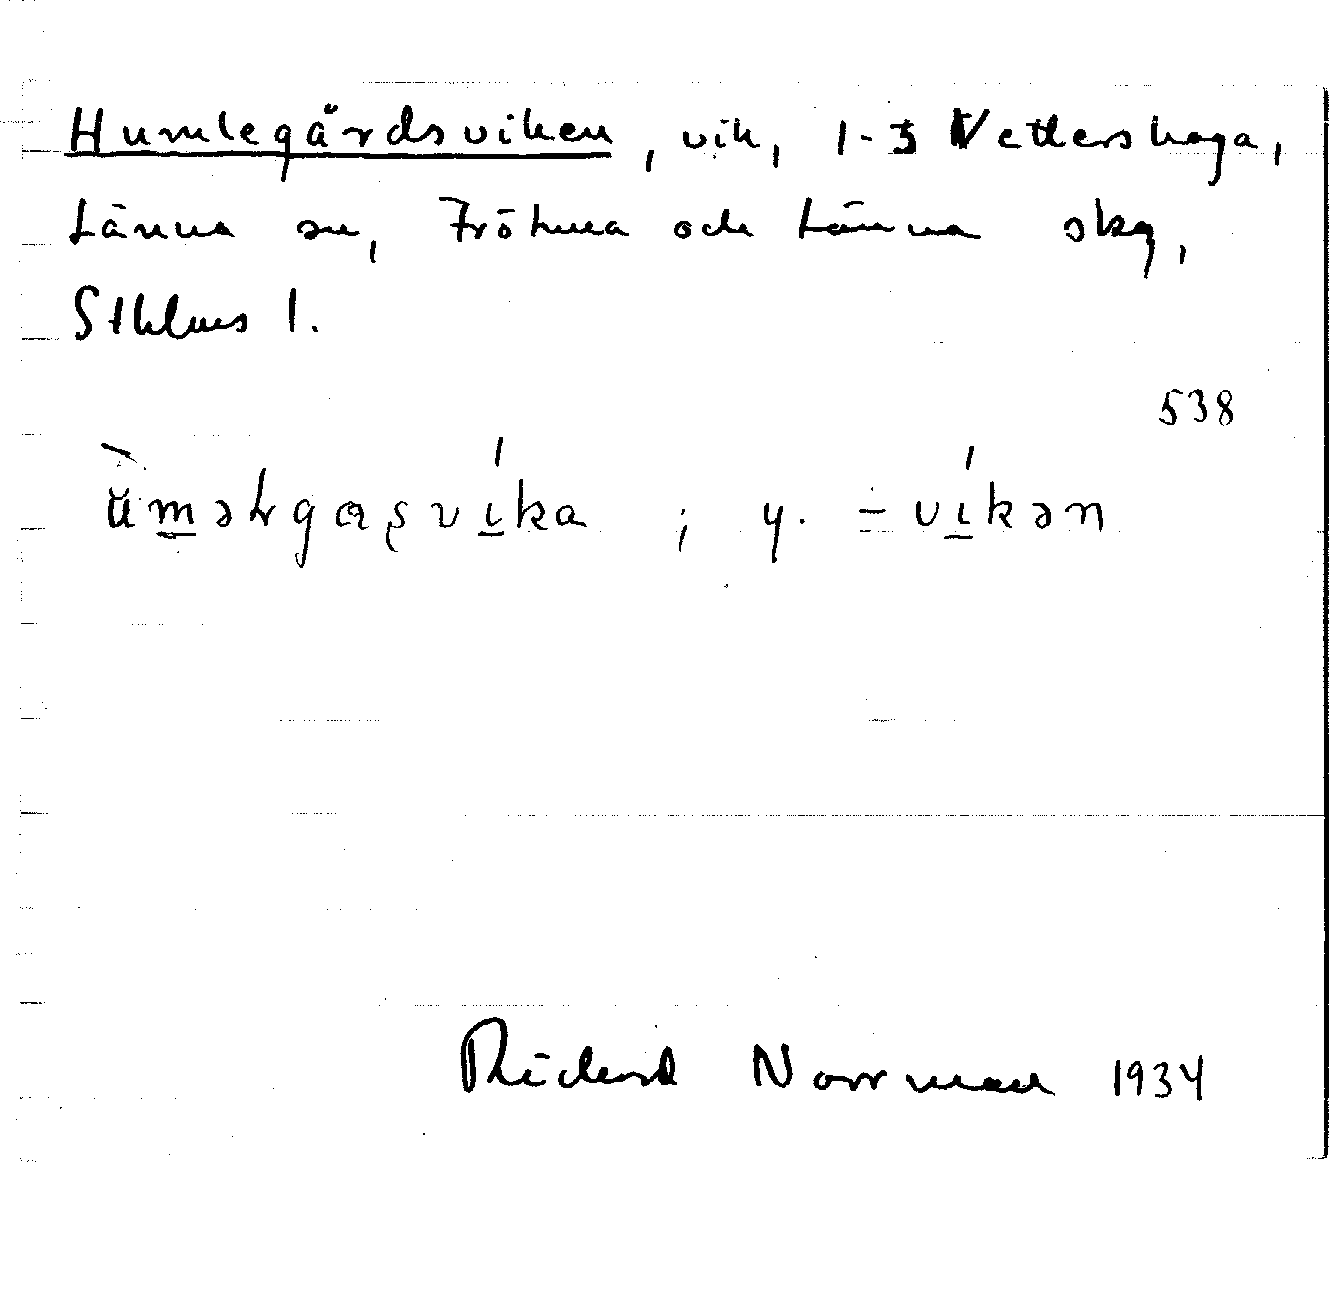 Humlegårdsviken, vik, 1-3 Vettershaga,
Länna sn, Frötuna och Länna skg,
Sthlms l.
538
ŭ̀m̲əɫgaʂví̲ka ; y. =ví̲kən
Rickard Norrman 1934